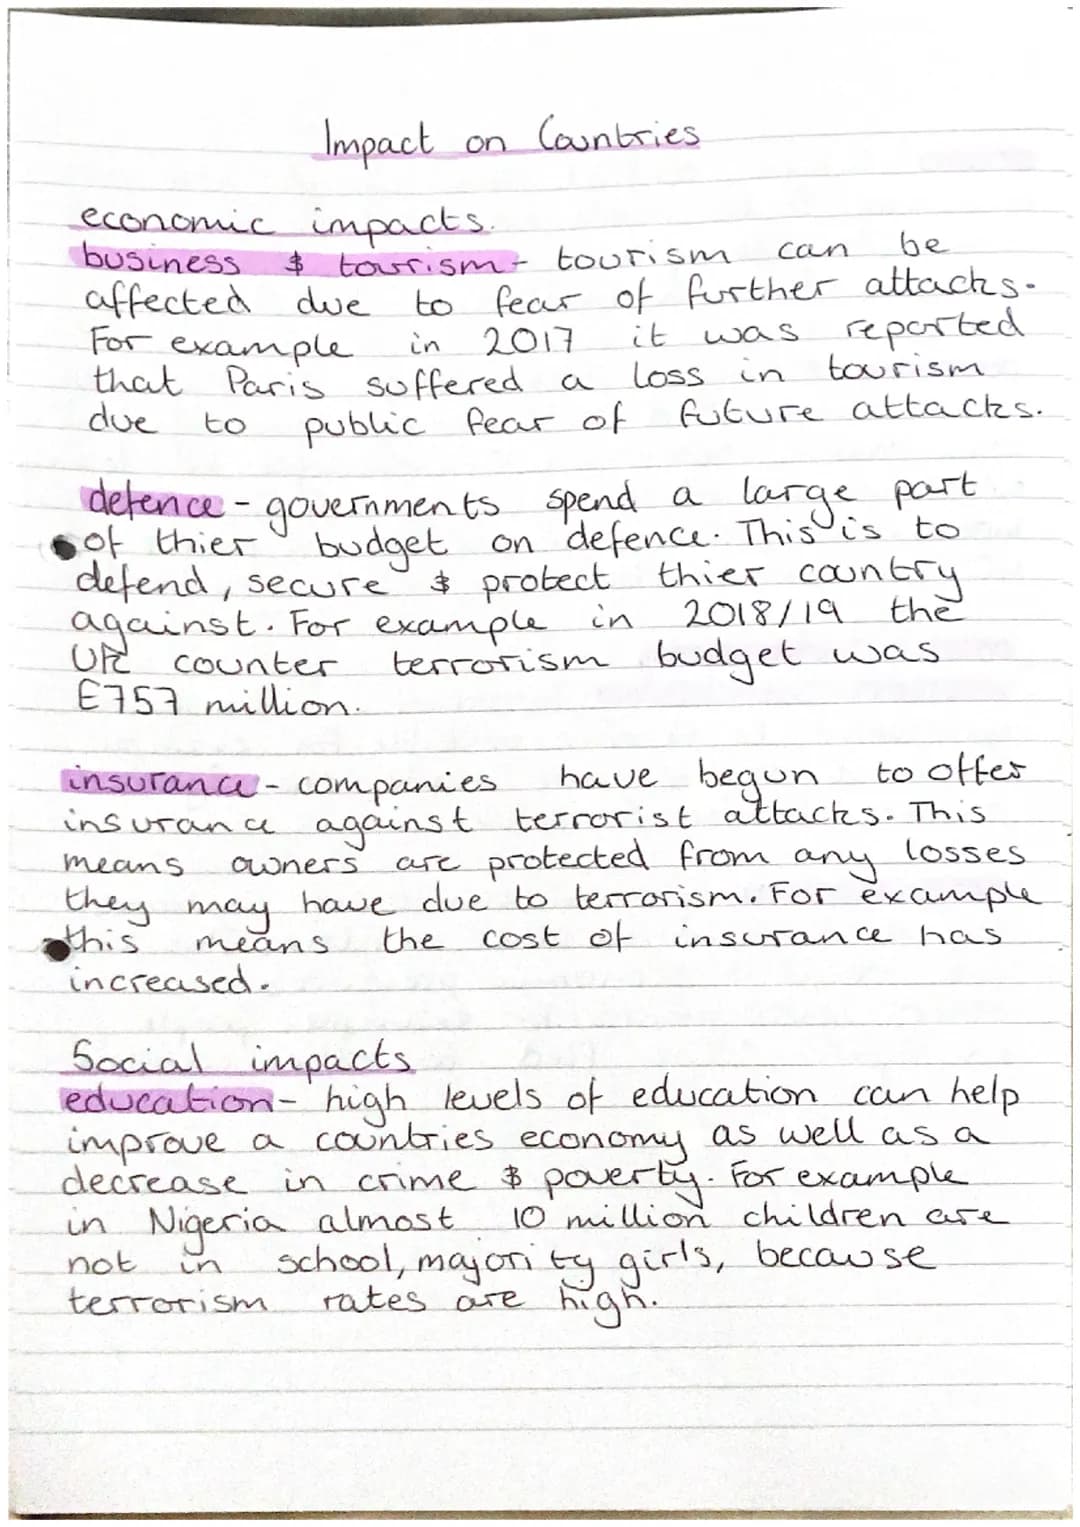 Impact on Countries
economic impacts.
business & tourism- tourism can be
affected due to fear of further attacks.
For example in 2017 it was reported
that Paris suffered a loss in tourism
due to public fear of future attacks.
defence - governments spend a large part
of thier budget on defence. This is to
defend, secure & protect thier country
against. For example in 2018/19 the
UK counter terrorism budget was
£757 million.
insurance - companies have begun to offer
insurance against terrorist attacks. This
means owners are protected from any losses
they may have due to terrorism. For example
this means the cost of insurance has
increased.
Social impacts
education- high levels of education can help
improve a countries economy as well as a
decrease in crime & poverty. For example
in Nigeria almost 10 million children are
not in school, majority girls, because
terrorism rates are high.